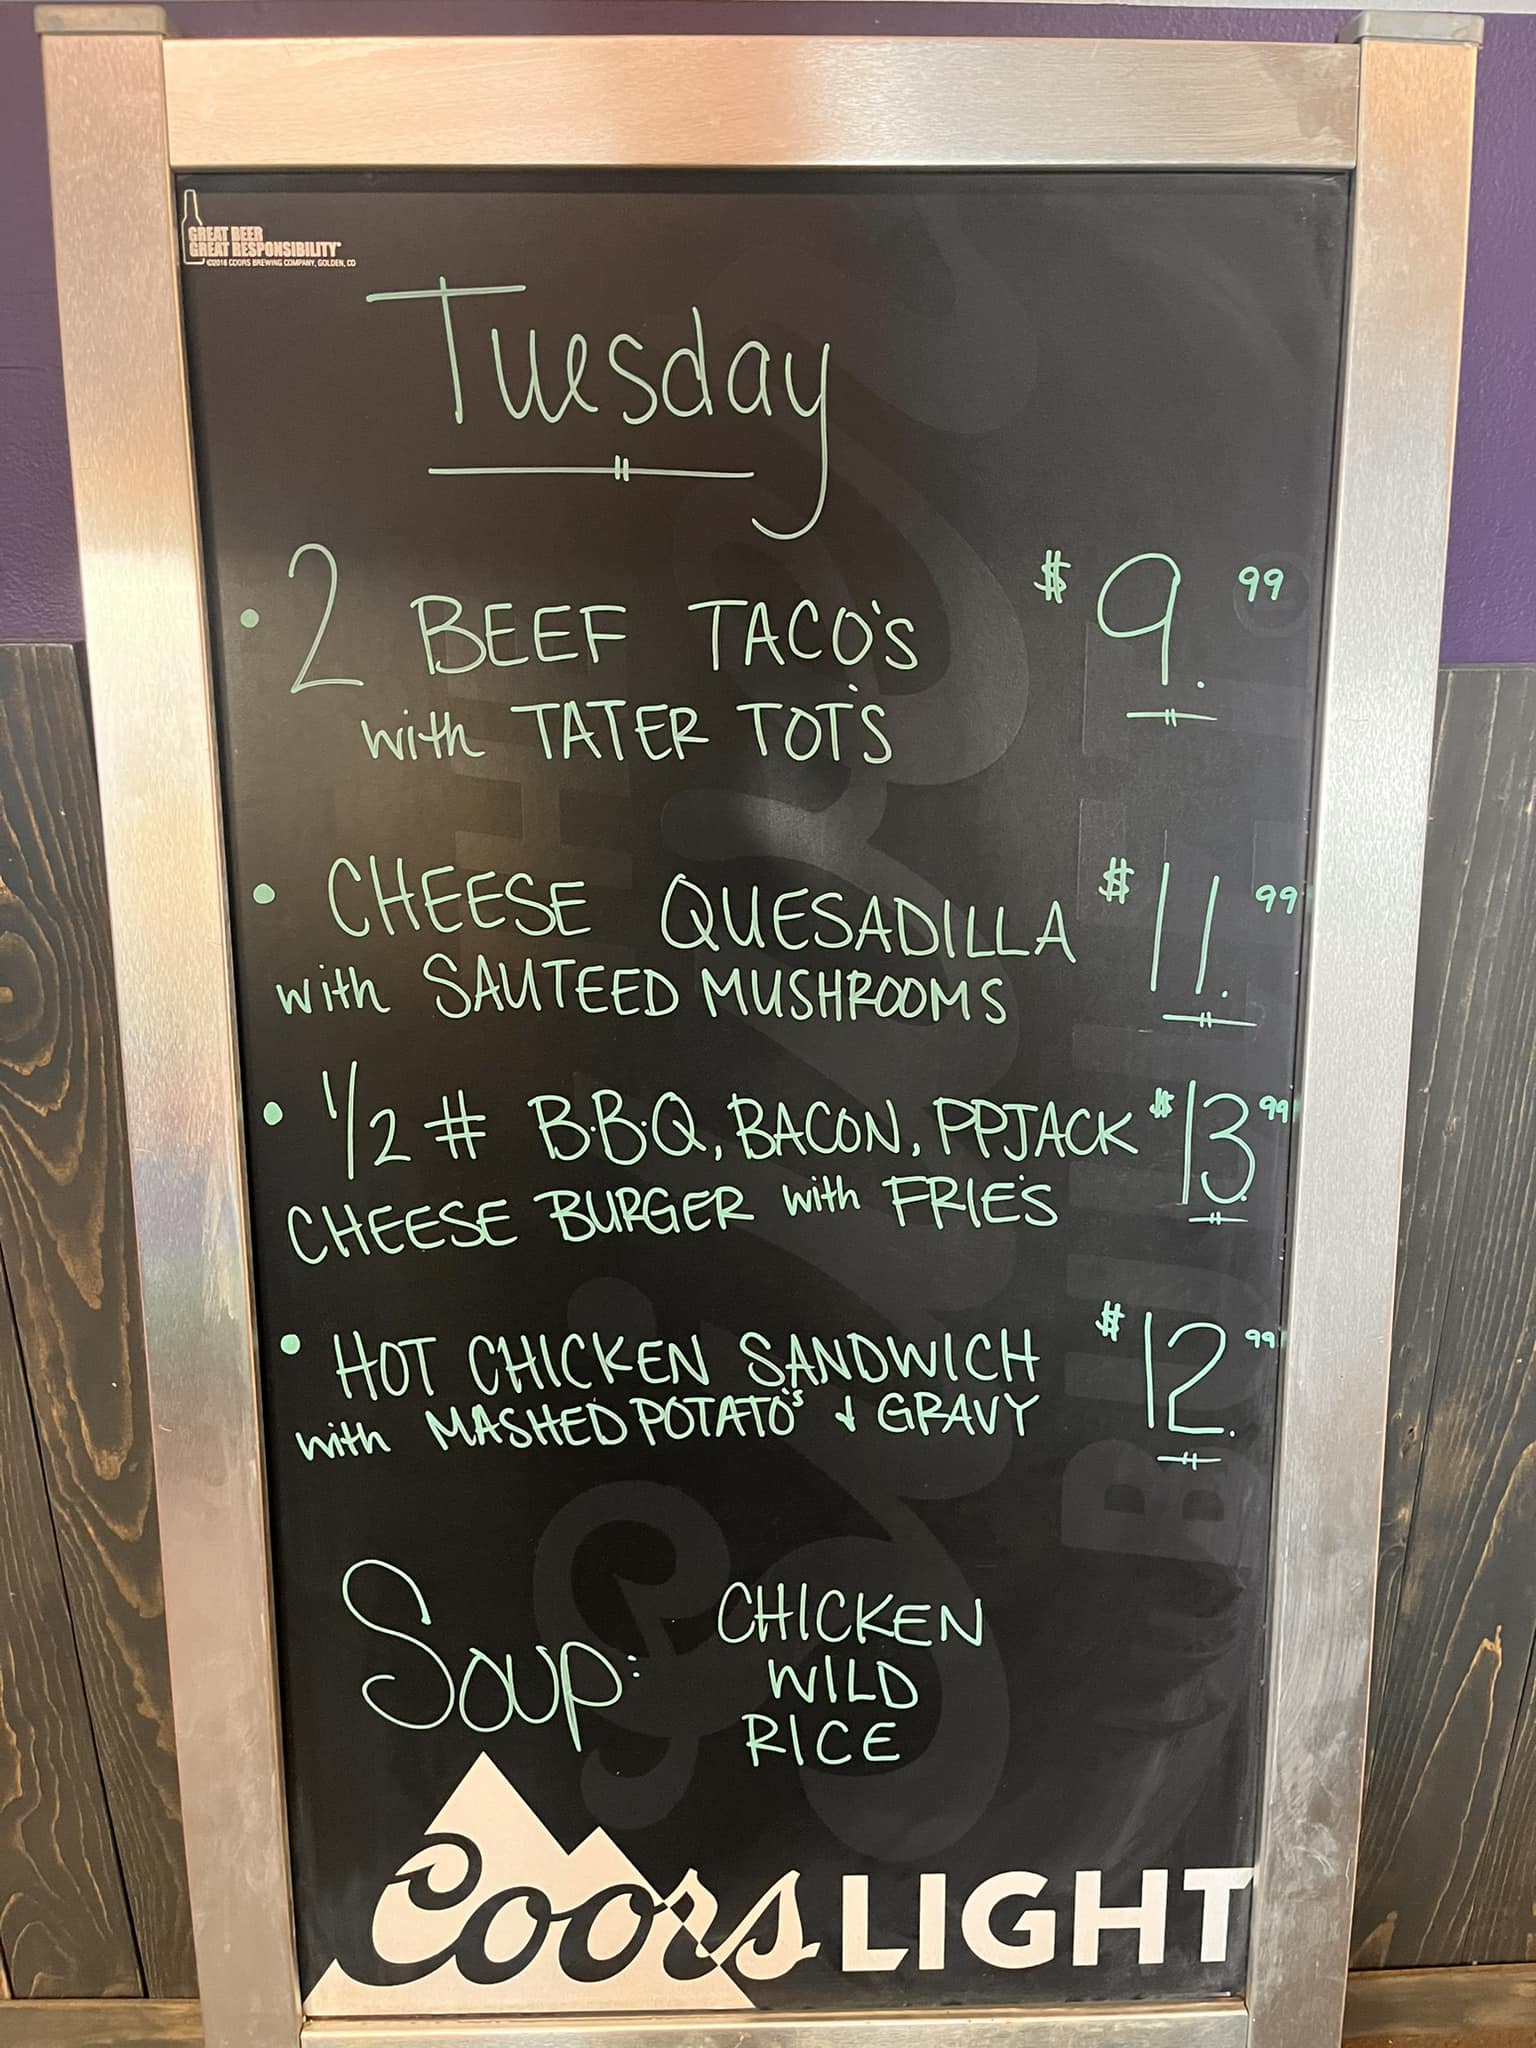 GREAT BEER
GREAT RESPONSIBILITY®
©2016 COORS BREWING COMPANY, GOLDEN, CO
Tuesday
• 2 BEEF TACO'S $9.99
with TATER TOT'S
• CHEESE QUESADILLA $11.99
with SAUTEED MUSHROOMS
• 1/2 # B.B.Q, BACON, PPJACK $13.99
CHEESE BURGER with FRIE'S
• HOT CHICKEN SANDWICH $12.99
with MASHED POTATO'S & GRAVY
Soup: CHICKEN
WILD
RICE
Coors LIGHT